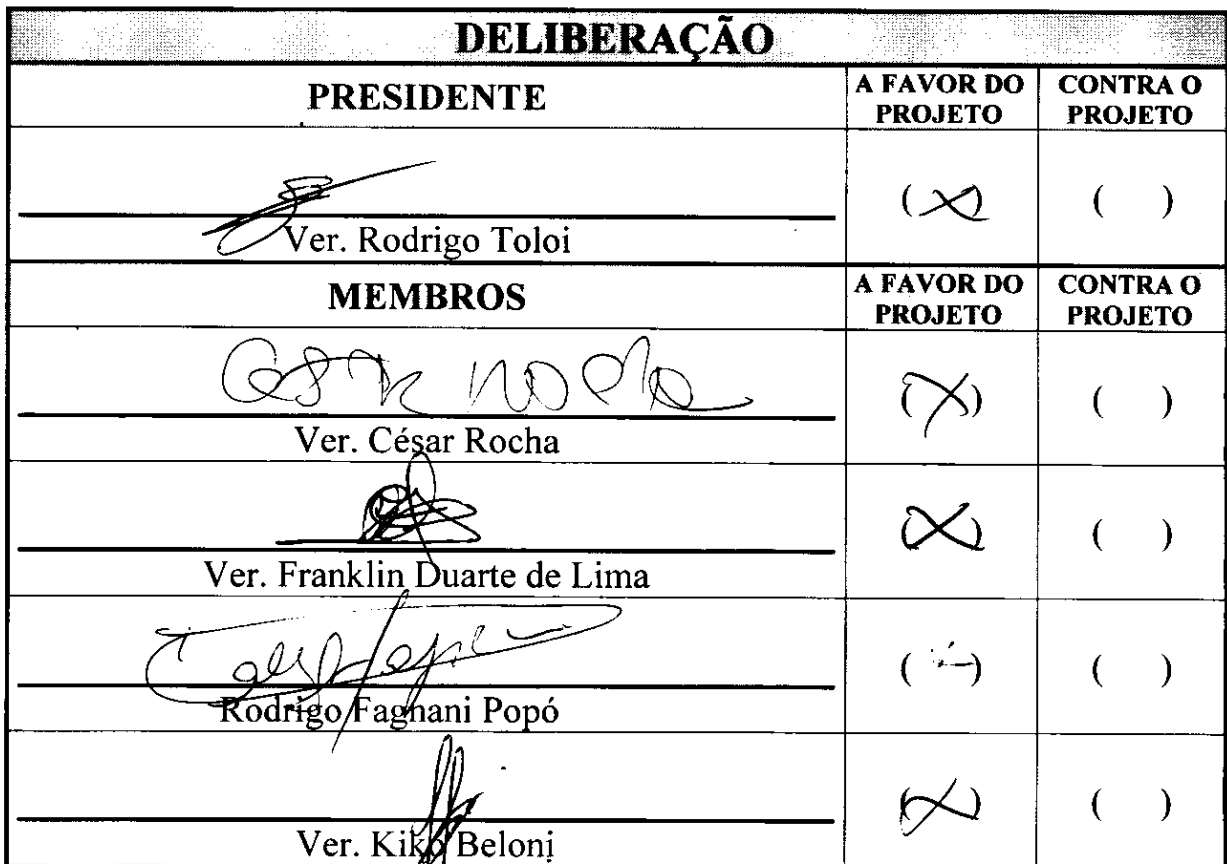 DELIBERAÇÃO
PRESIDENTE
A FAVOR DO PROJETO
CONTRA O PROJETO
Ver. Rodrigo Toloi
(X)
( )
MEMBROS
A FAVOR DO PROJETO
CONTRA O PROJETO
Ver. César Rocha
(X)
( )
Ver. Franklin Duarte de Lima
(X)
( )
Rodrigo Fagnani Popó
( )
( )
Ver. Kiko Beloni
(X)
( )